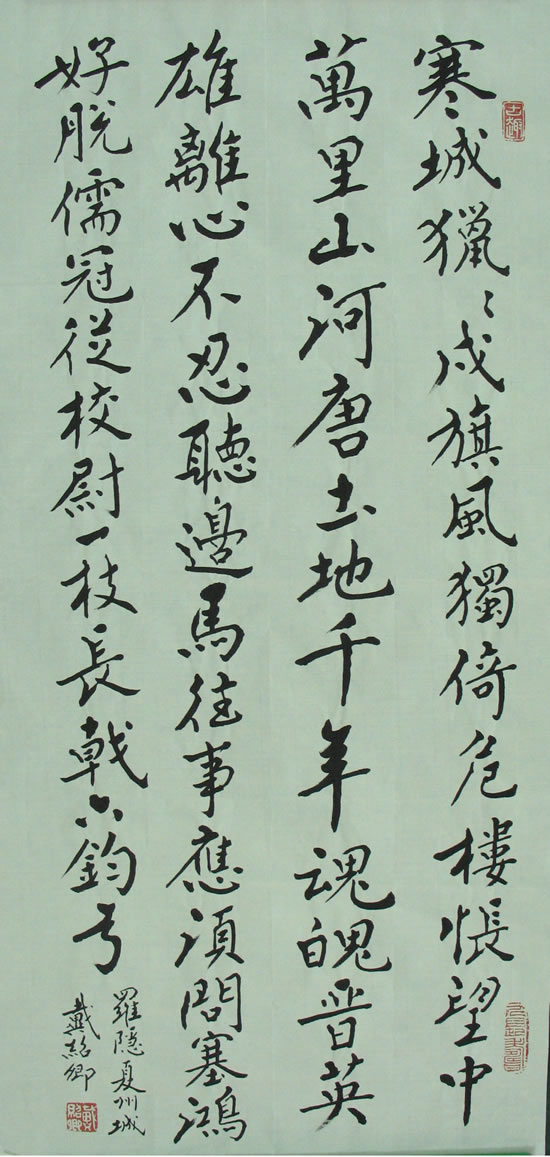 寒城獵〻戍旗風獨倚危樓悵望中
萬里山河唐土地千年魂魄晉英
雄離心不忍聽邊馬往事應須問塞鴻
好脫儒冠從校尉一枝長戟六鈞弓
羅隱夏州城
戴紹卿